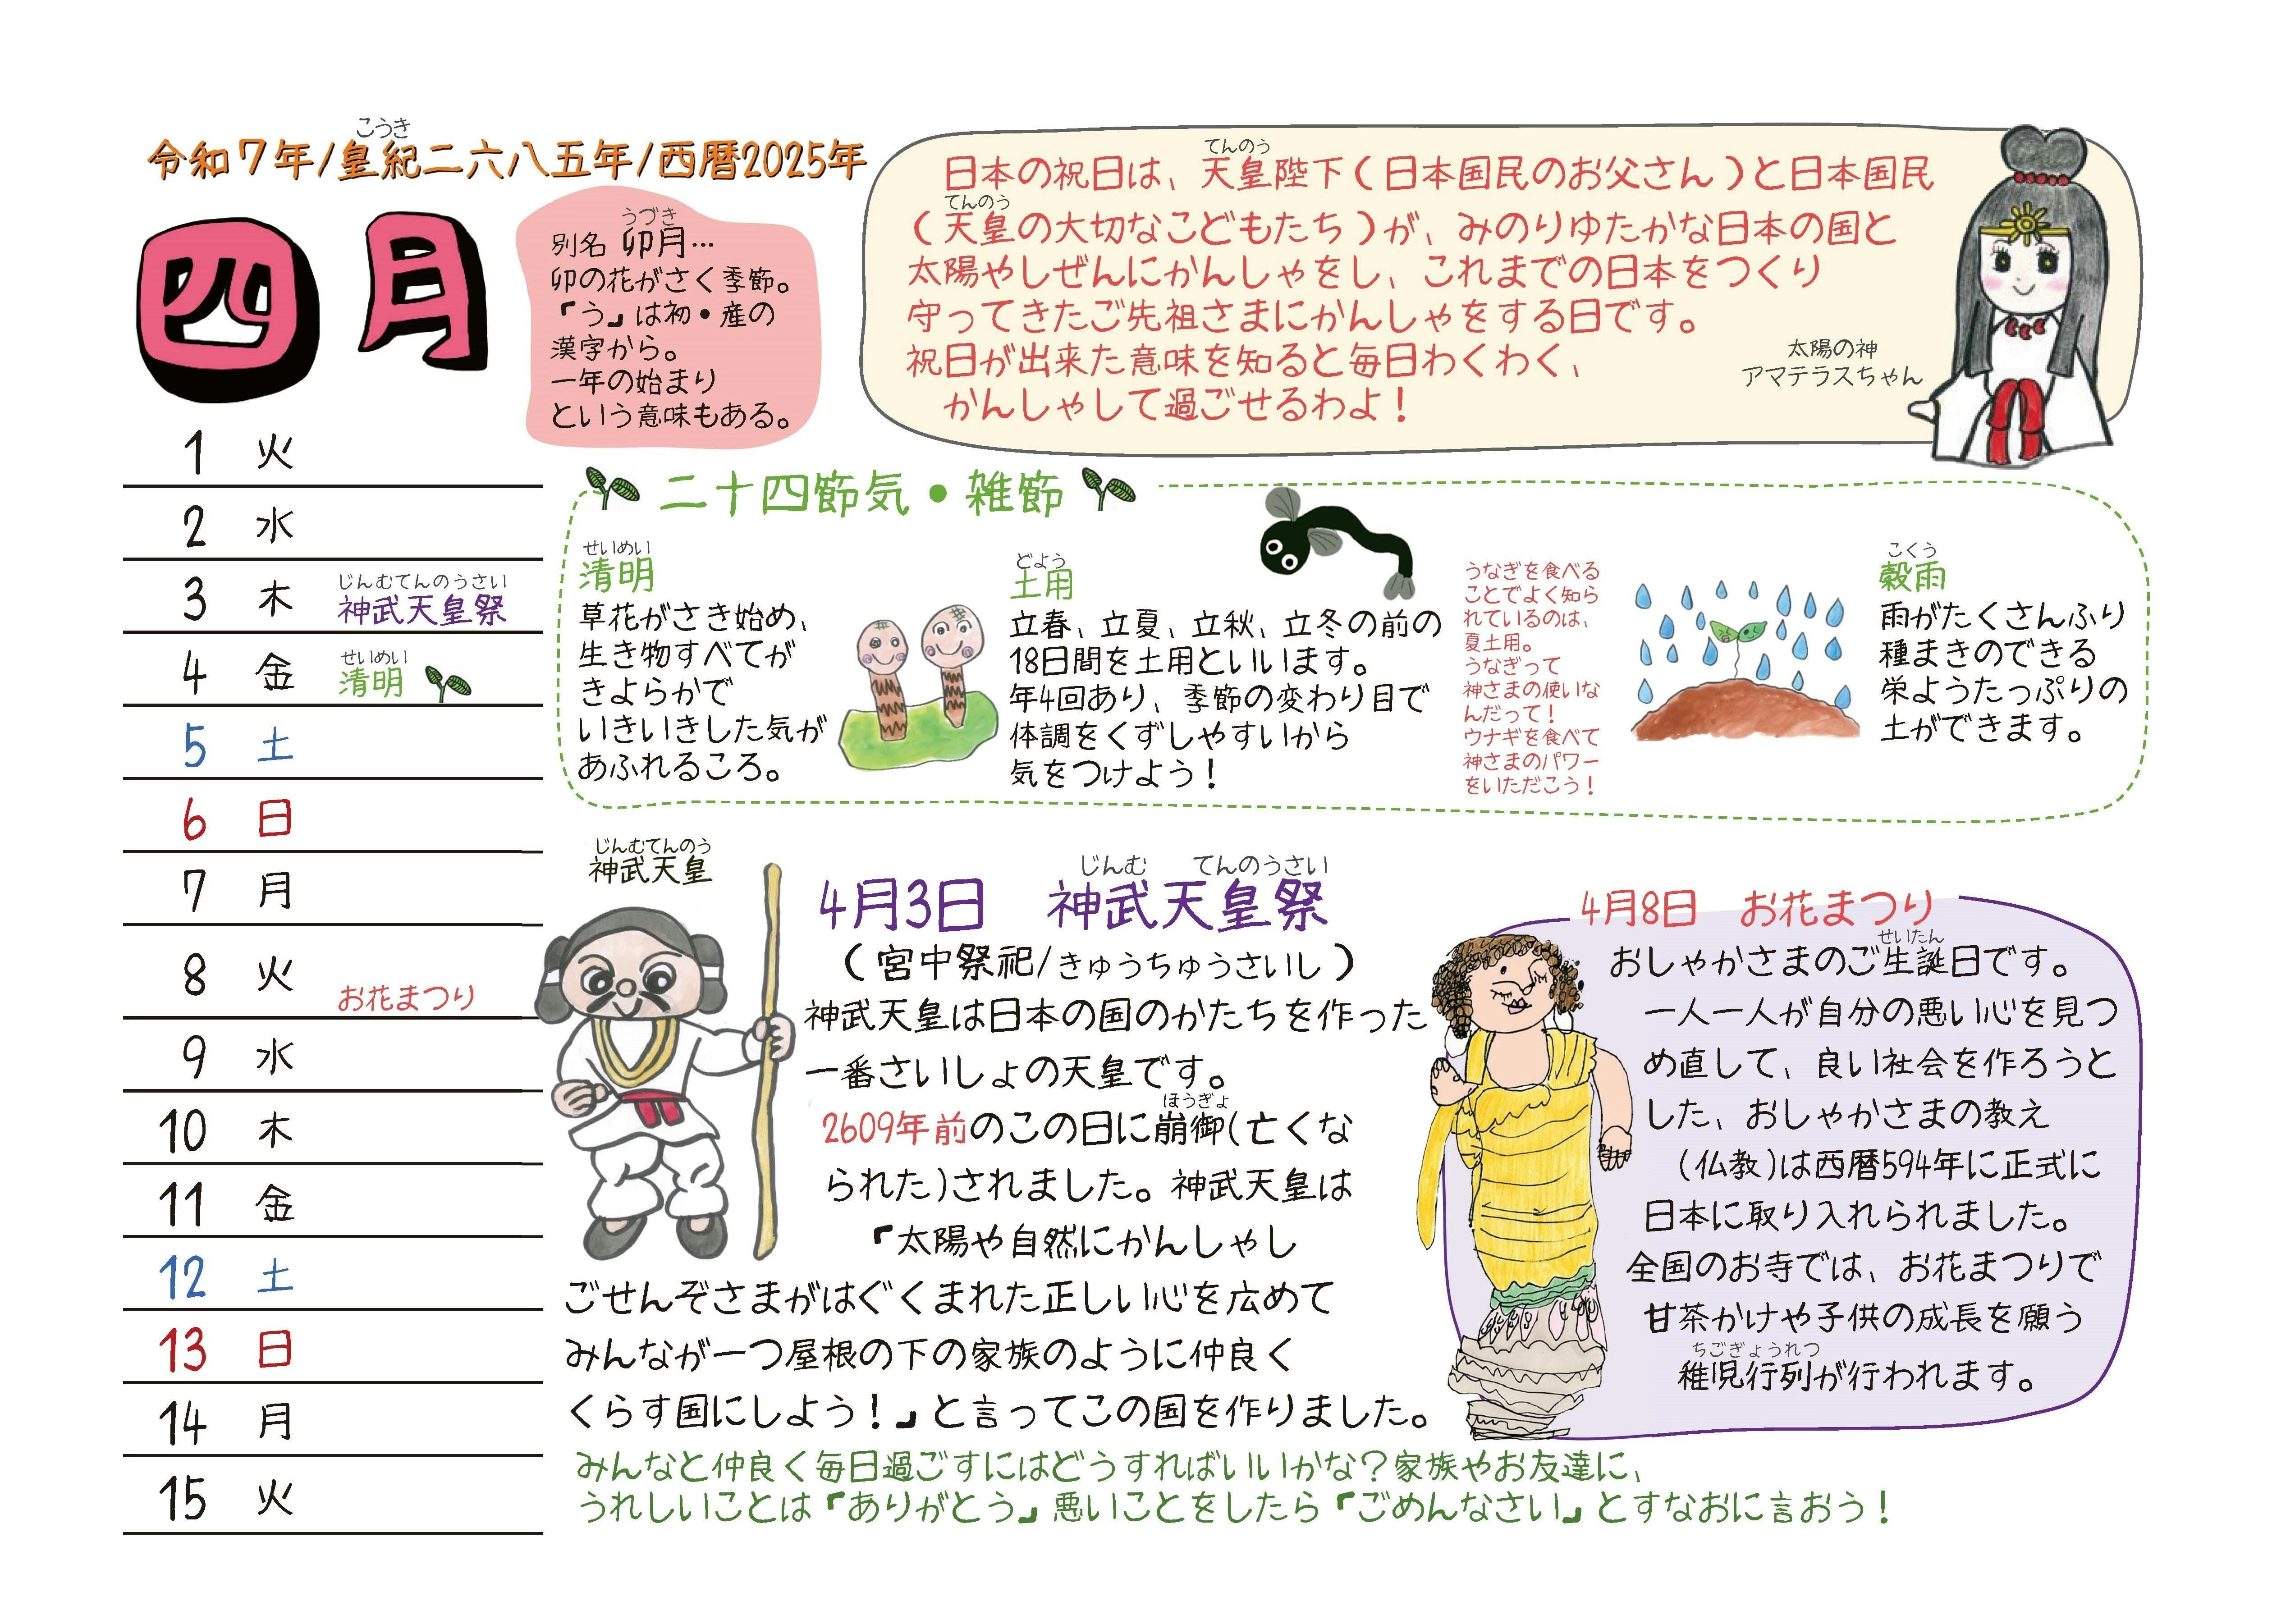 こうき
令和7年/皇紀二六八五年/西暦2025年
四月
うづき
別名 卯月…
卯の花がさく季節。
『う』は初・産の
漢字から。
一年の始まり
という意味もある。
てんのう
日本の祝日は、天皇陛下(日本国民のお父さん)と日本国民
てんのう
(天皇の大切なこどもたち)が、みのりゆたかな日本の国と
太陽やしぜんにかんしゃをし、これまでの日本をつくり
守ってきたご先祖さまにかんしゃをする日です。
祝日が出来た意味を知ると毎日わくわく、
かんしゃして過ごせるわよ!
太陽の神
アマテラスちゃん
1 火
2 水
じんむてんのうさい
3 木 神武天皇祭
せいめい
4 金 清明
5 土
6 日
7 月
8 火 お花まつり
9 水
10 木
11 金
12 土
13 日
14 月
15 火
二十四節気・雑節
せいめい
清明
草花がさき始め、
生き物すべてが
きよらかで
いきいきした気が
あふれるころ。
どよう
土用
立春、立夏、立秋、立冬の前の
18日間を土用といいます。
年4回あり、季節の変わり目で
体調をくずしやすいから
気をつけよう!
うなぎを食べる
ことでよく知ら
れているのは、
夏土用。
うなぎって
神さまの使いな
んだって!
ウナギを食べて
神さまのパワー
をいただこう!
こくう
穀雨
雨がたくさんふり
種まきのできる
栄ようたっぷりの
土ができます。
じんむてんのう
神武天皇
じんむ てんのうさい
4月3日 神武天皇祭
(宮中祭祀/きゅうちゅうさいし)
神武天皇は日本の国のかたちを作った
一番さいしょの天皇です。
ほうぎょ
2609年前のこの日に崩御(亡くな
られた)されました。神武天皇は
『太陽や自然にかんしゃし
ごせんぞさまがはぐくまれた正しい心を広めて
みんなが一つ屋根の下の家族のように仲良く
くらす国にしよう!』と言ってこの国を作りました。
4月8日 お花まつり
せいたん
おしゃかさまのご生誕日です。
一人一人が自分の悪い心を見つ
め直して、良い社会を作ろうと
した、おしゃかさまの教え
(仏教)は西暦594年に正式に
日本に取り入れられました。
全国のお寺では、お花まつりで
甘茶かけや子供の成長を願う
ちごぎょうれつ
稚児行列が行われます。
みんなと仲良く毎日過ごすにはどうすればいいかな?家族やお友達に、
うれしいことは『ありがとう』悪いことをしたら『ごめんなさい』とすなおに言おう!